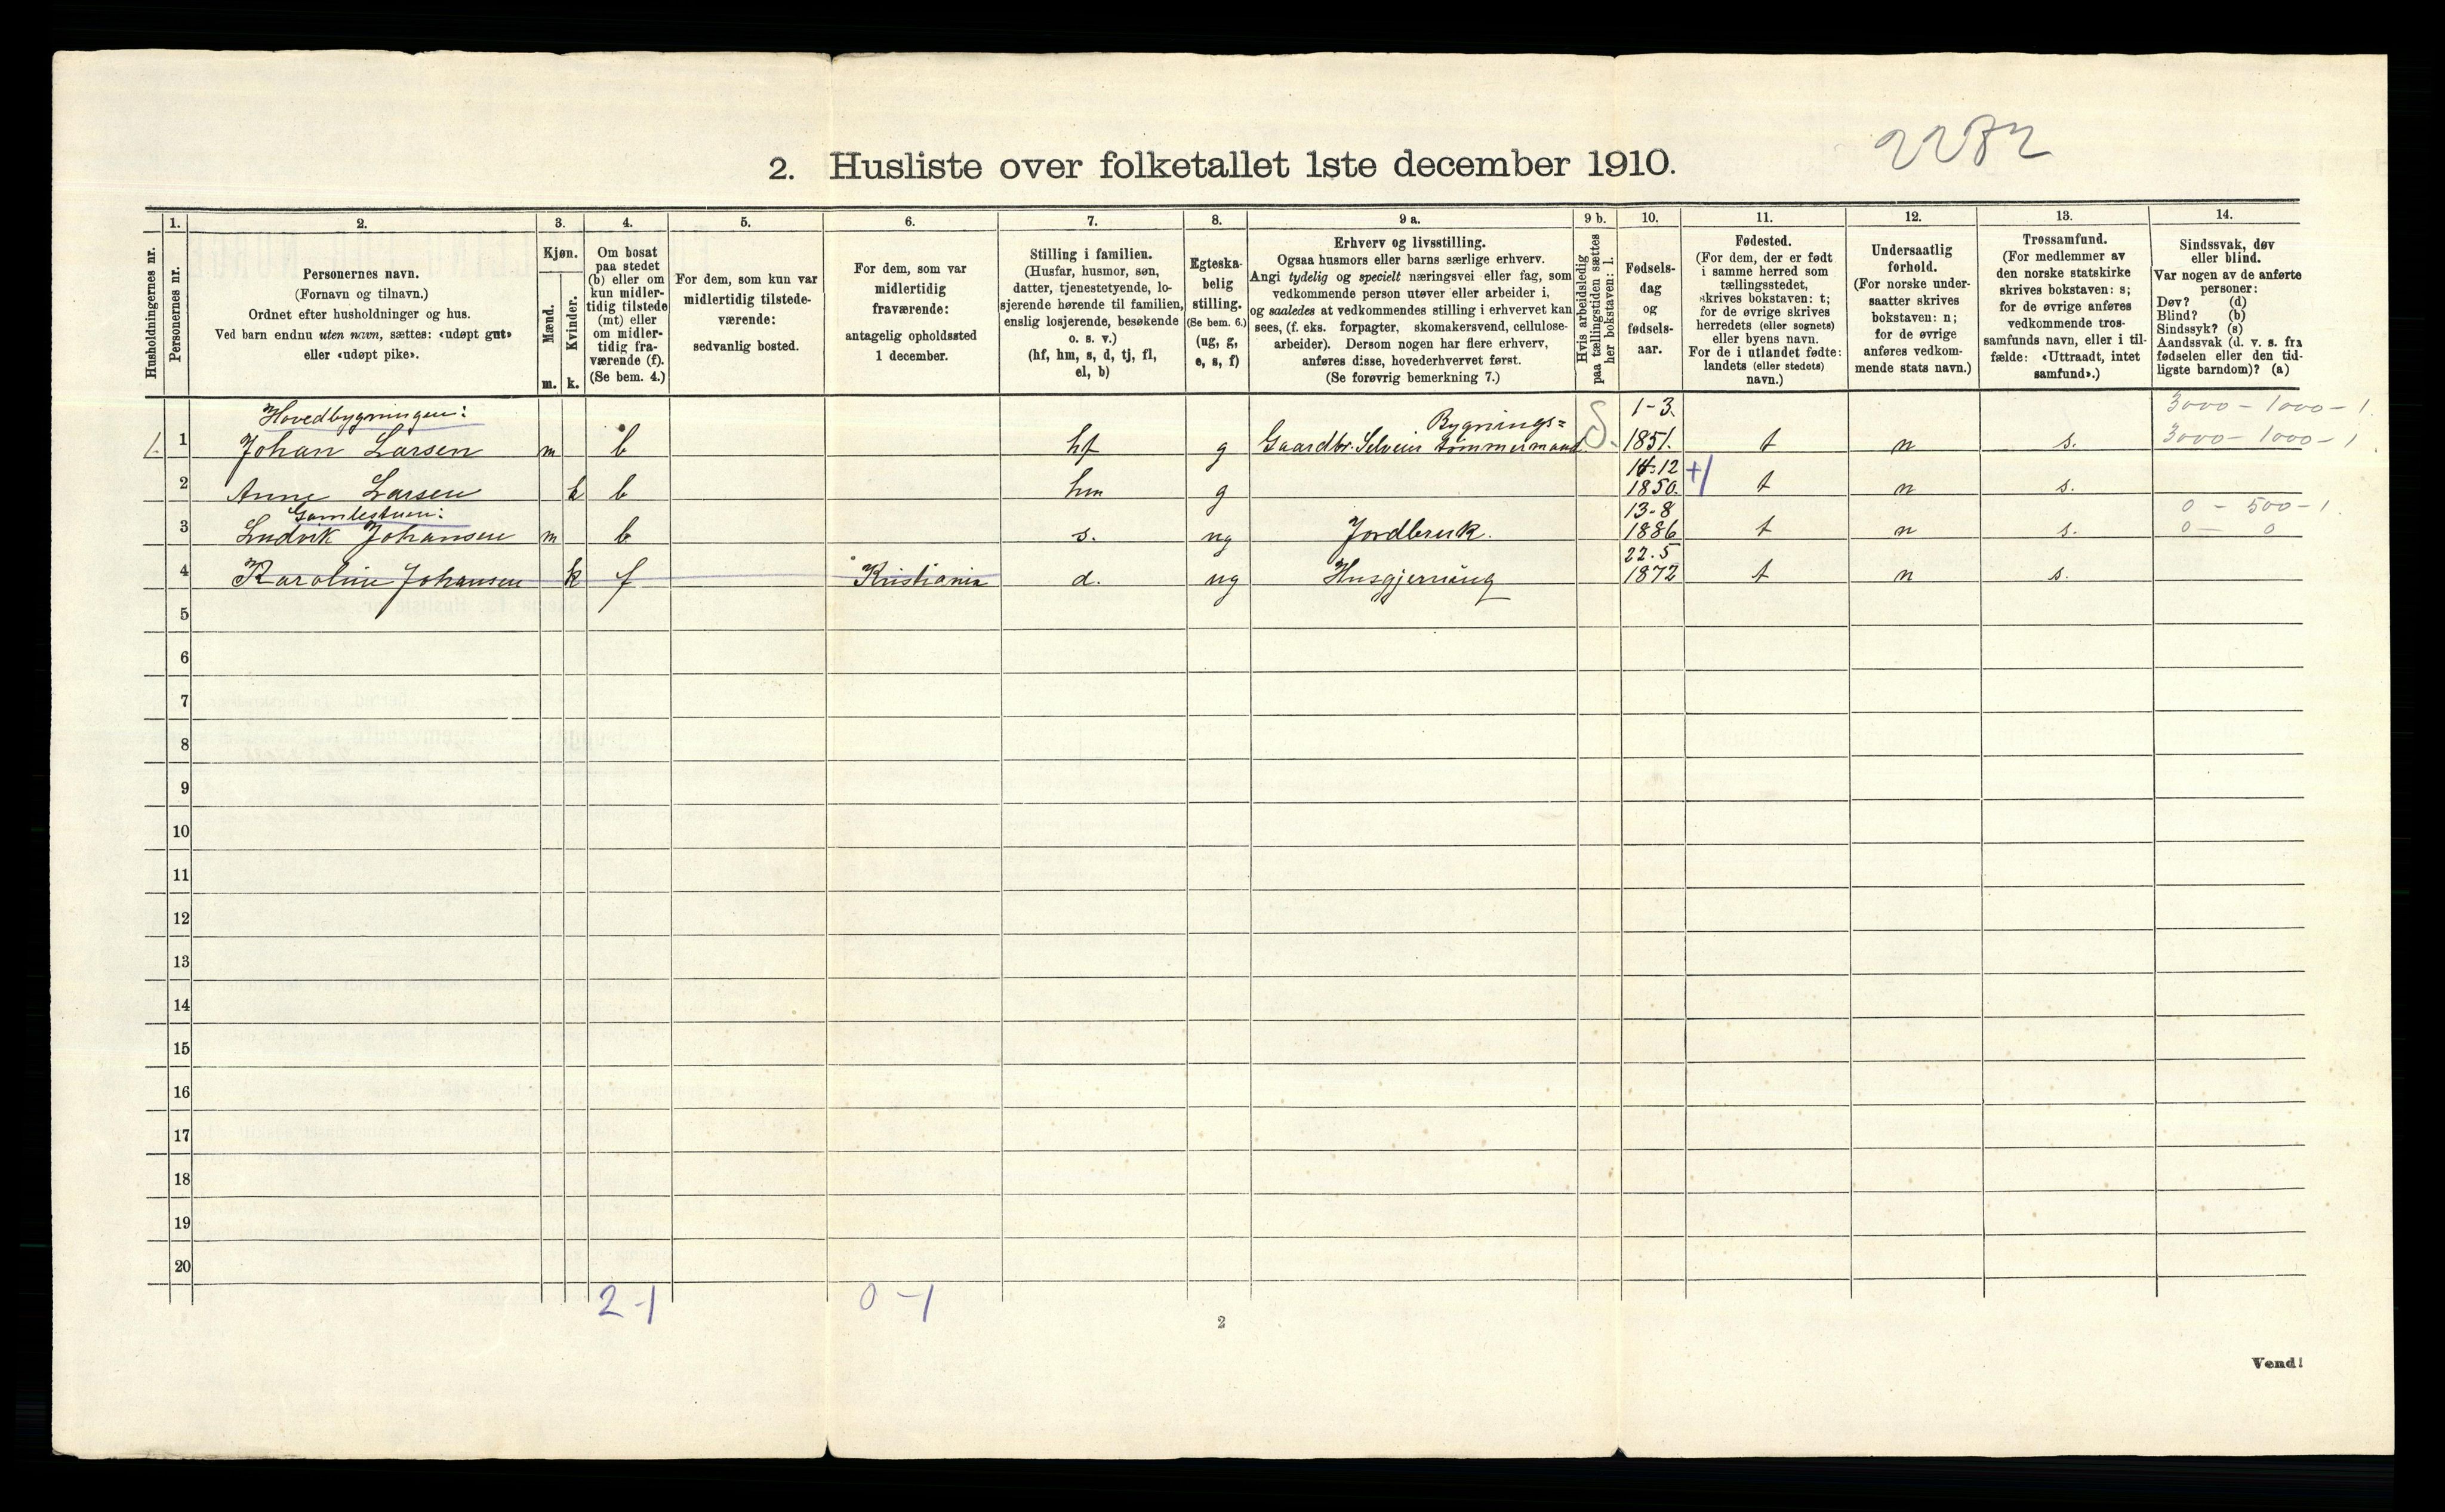 2282
2. Husliste over folketallet 1ste december 1910.
Husholdningernes nr.
1.
Personernes nr.
2.
Personernes navn.
(Fornavn og tilnavn.)
Ordnet efter husholdninger og hus.
Ved barn endnu uten navn, sættes: «udøpt gut»
eller «udøpt pike».
3.
Kjøn.
Mænd.
Kvinder.
m. k.
4.
Om bosat
paa stedet
(b) eller om
kun midler-
tidig tilstede
(mt) eller
om midler-
tidig fra-
værende (f).
(Se bem. 4.)
5.
For dem, som kun var
midlertidig tilstede-
værende:
sedvanlig bosted.
6.
For dem, som var
midlertidig
fraværende:
antagelig opholdssted
1 december.
7.
Stilling i familien.
(Husfar, husmor, søn,
datter, tjenestetyende, lo-
sjerende hørende til familien,
enslig losjerende, besøkende
o. s. v.)
(hf, hm, s, d, tj, fl,
el, b)
8.
Egteska-
belig
stilling.
(Se bem. 6.)
(ug, g,
e, s, f)
9 a.
Erhverv og livsstilling.
Ogsaa husmors eller barns særlige erhverv.
Angi tydelig og specielt næringsvei eller fag, som
vedkommende person utøver eller arbeider i,
og saaledes at vedkommendes stilling i erhvervet kan
sees, (f. eks. forpagter, skomakersvend, cellulose-
arbeider). Dersom nogen har flere erhverv,
anføres disse, hovederhvervet først.
(Se forøvrig bemerkning 7.)
9 b.
Hvis arbeidsledig
paa tællingstiden sættes
her bokstaven: l.
10.
Fødsels-
dag
og
fødsels-
aar.
11.
Fødested.
(For dem, der er født
i samme herred som
tællingsstedet,
skrives bokstaven: t;
for de øvrige skrives
herredets (eller sognets)
eller byens navn.
For de i utlandet fødte:
landets (eller stedets)
navn.)
12.
Undersaatlig
forhold.
(For norske under-
saatter skrives
bokstaven: n;
for de øvrige
anføres vedkom-
mende stats navn.)
13.
Trossamfund.
(For medlemmer av
den norske statskirke
skrives bokstaven: s;
for de øvrige anføres
vedkommende tros-
samfunds navn, eller i til-
fælde: «Uttraadt, intet
samfund».)
14.
Sindssvak, døv
eller blind.
Var nogen av de anførte
personer:
Døv? (d)
Blind? (b)
Sindssyk? (s)
Aandssvak (d. v. s. fra
fødselen eller den tid-
ligste barndom)? (a)
Hovedbygningen: Bygnings= 1-3. 3000 - 1000 - 1.
1. 1 Johan Larsen m b hf g Gaardbr. Selveier tømmermand S. 1851. t n s. 3000 - 1000 - 1
14-12 +1
2 Anne Larsen k b hm g 1850. t n s.
Gamlestuen: 13-8 0 - 500 - 1.
3 Ludvik Johansen m b s. ug Jordbruk. 1886 t n s. 0 - 0
22.5
4 Karoline Johansen k f Kristiania d. ug Husgjerning 1872 t n s.
5
6
7
8
9
10
11
12
13
14
15
16
17
18
19
20
2-1 0-1
2
Vend!